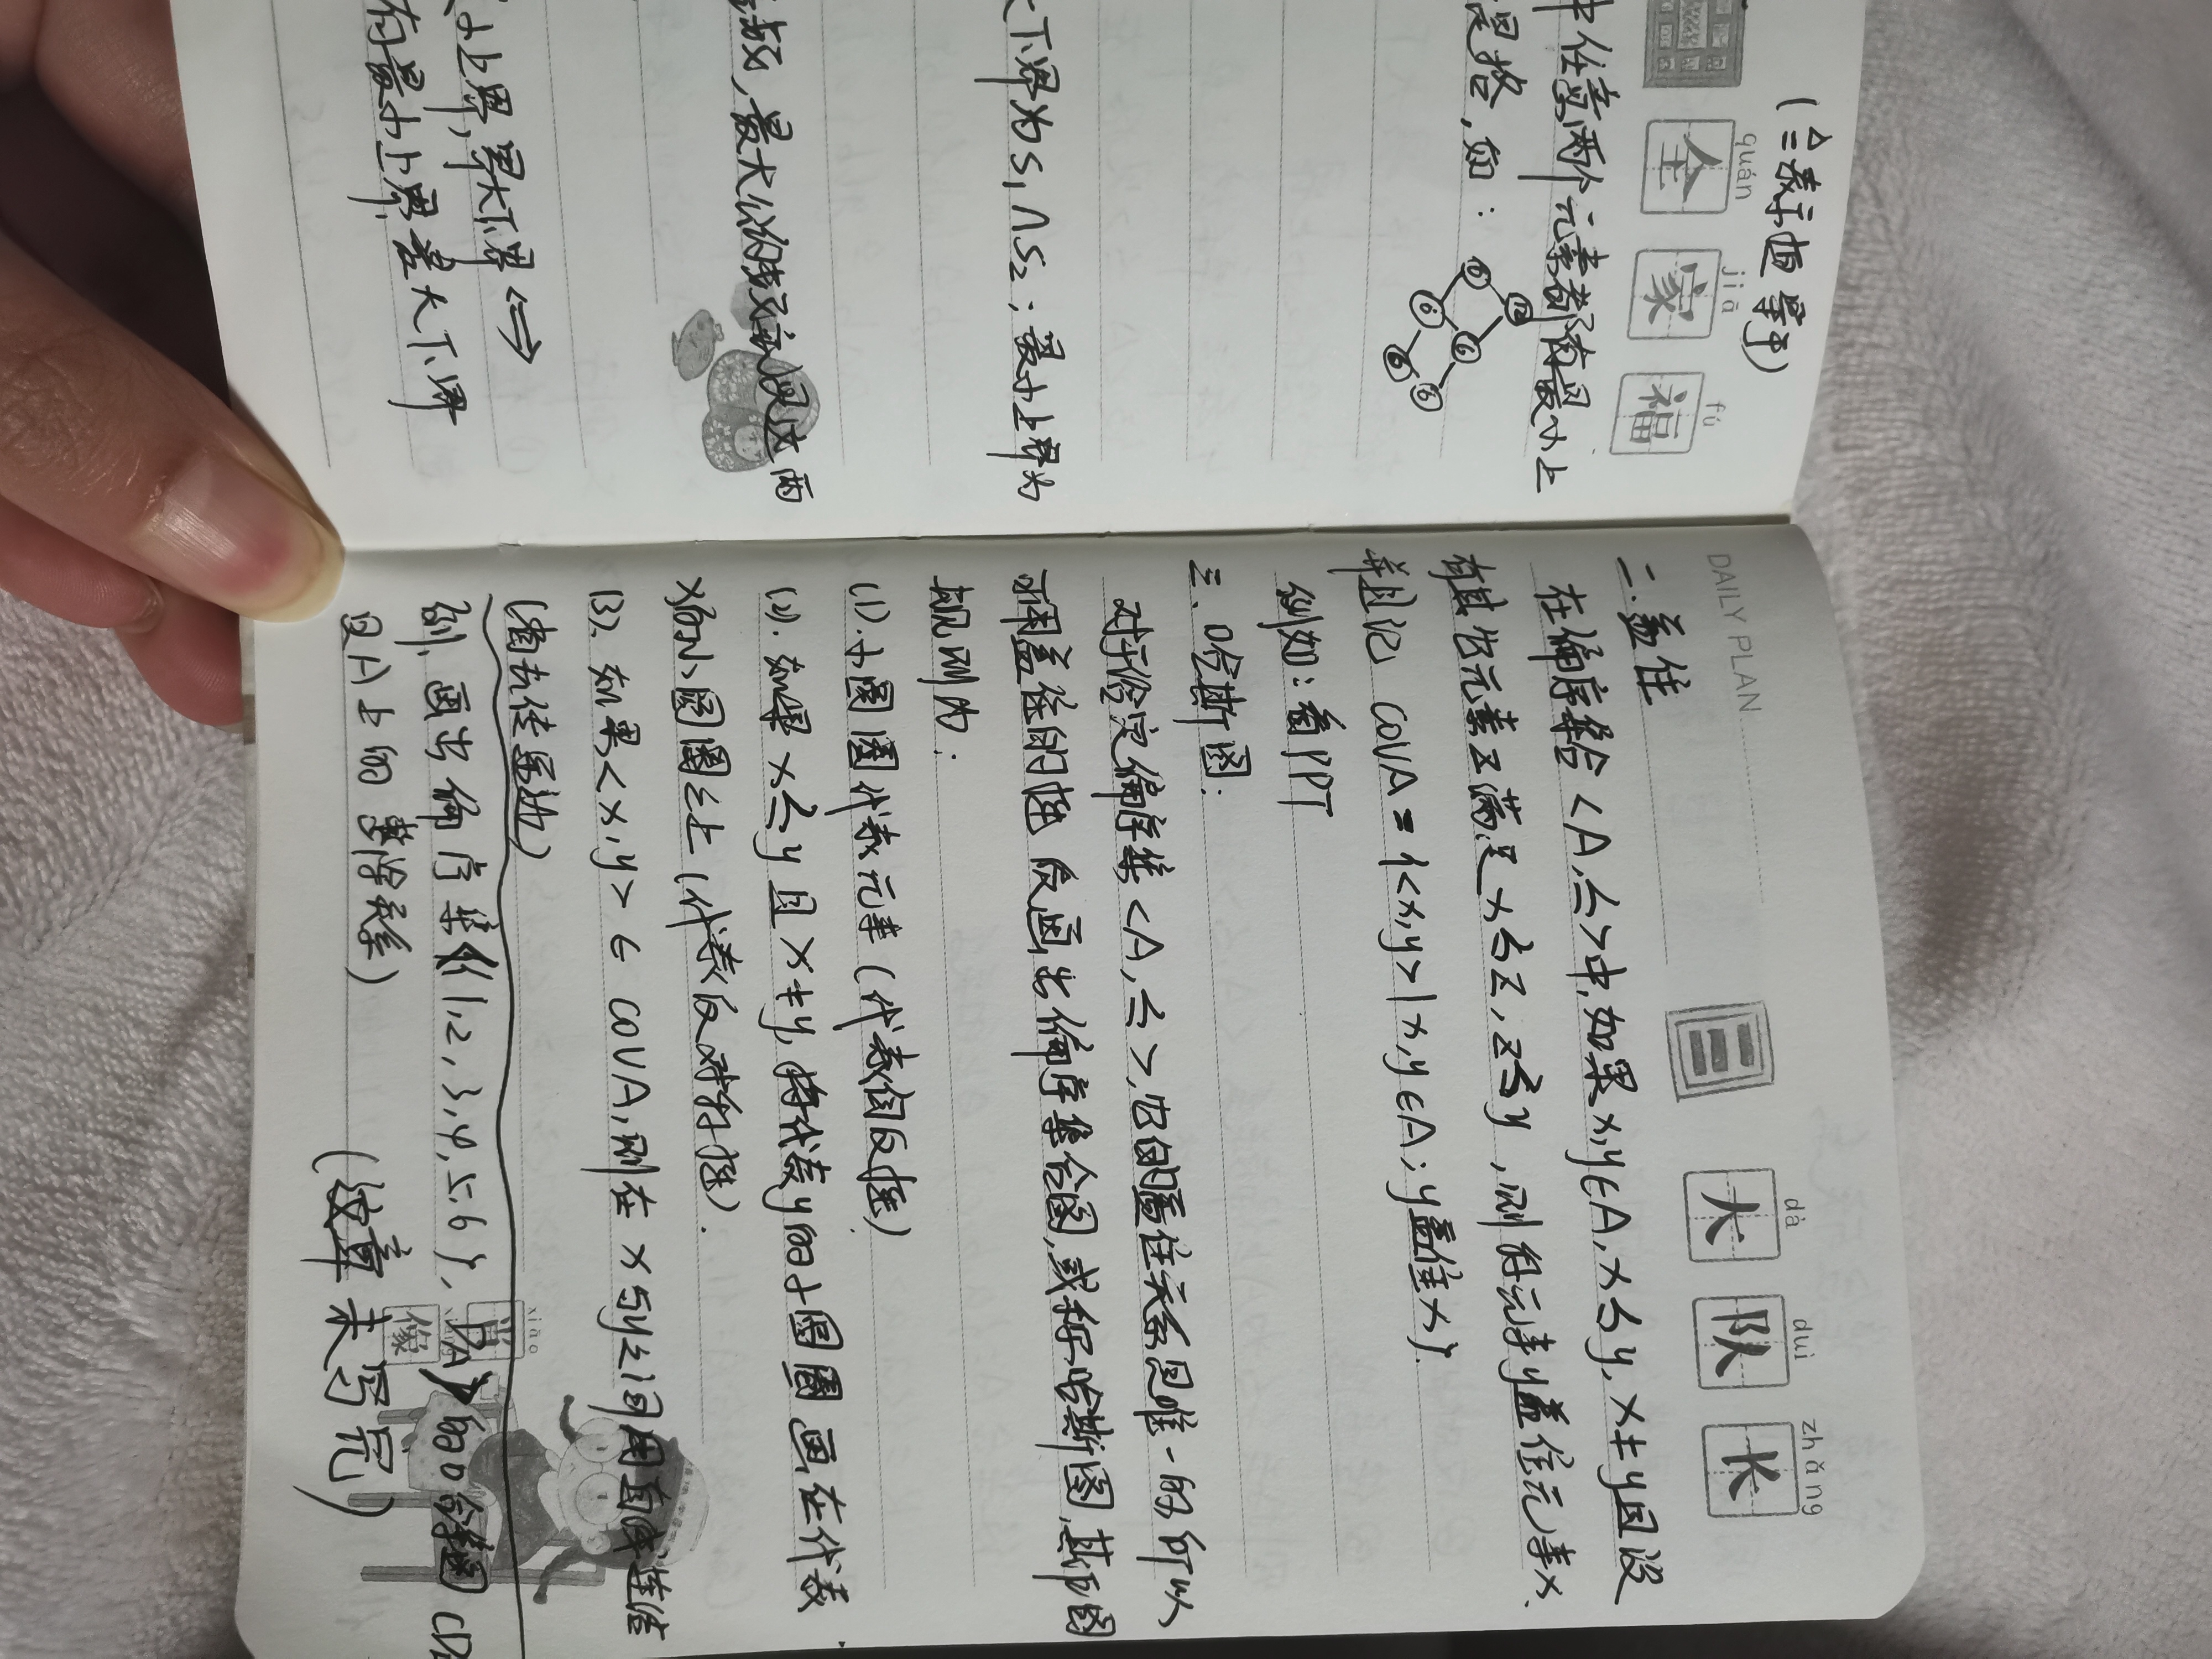 (≜表示值等于)
quán jiā fú
全家福
中任意两个元素都有最小上
是格,如:
⑫
⑥
⑥
大下界为S₁∩S₂;最小上界为
最大公约数就是这两
小上界,最大下界 <=>
有最小上界,最大下界
DAILY PLAN
dà duì zhǎng
大队长
二.盖住
在偏序集合<A,≤>中,如果x,y∈A,x≤y,x≠y且没
有其它元素z满足x≤z,z≤y,则称元素y盖住元素x.
并且记 COVA={<x,y>|x,y∈A;y盖住x}.
例如:看PPT
三、哈斯图:
对于给定偏序集<A,≤>,它的盖住关系是唯一的所以
可用盖住的性质画出偏序集合图,或称哈斯图,其作图
规则为:
(1).小圆圈代表元素(代表自反性)
(2).如果x≤y且x≠y,将代表y的小圆圈画在代表
x的小圆圈之上(代表反对称性).
(3).如果<x,y>∈COVA,则在x与y之间用直线连结
(省去传递边)
例.画出偏序集<{1,2,3,4,5,6},DA>的哈斯图(D
是A上的整除关系)
xiào
肖像
(这章未写完)